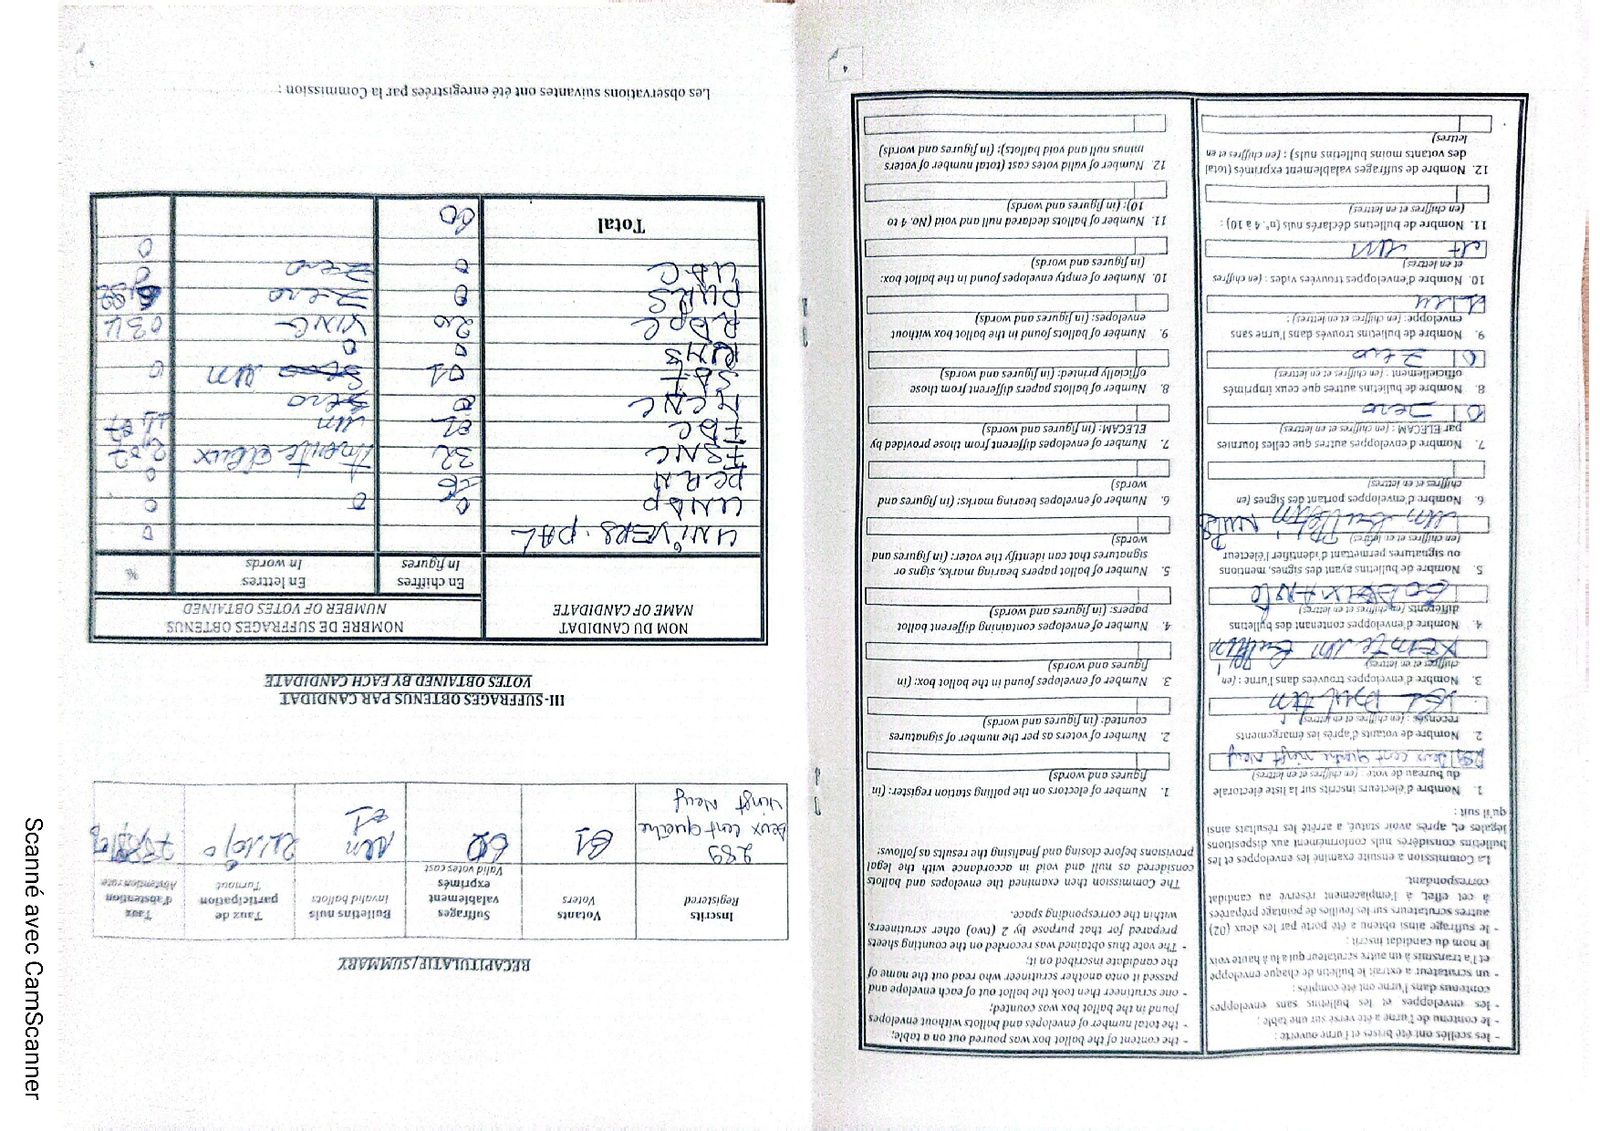 - les scellés ont été brisés et l'urne ouverte ;
- le contenu de l'urne a été versé sur une table ;
- les enveloppes et les bulletins sans enveloppes
contenus dans l'urne ont été comptés ;
- un scrutateur a extrait le bulletin de chaque enveloppe
et l'a transmis à un autre scrutateur qui a lu à haute voix
le nom du candidat inscrit ;
- le suffrage ainsi obtenu a été porté par les deux (02)
autres scrutateurs sur les feuilles de pointage préparées
à cet effet, à l'emplacement réservé au candidat
correspondant.
La Commission a ensuite examiné les enveloppes et les
bulletins considérés nuls conformément aux dispositions
légales et, après avoir statué, a arrêté les résultats ainsi
qu'il suit :
1. Nombre d'électeurs inscrits sur la liste électorale
du bureau de vote : (en chiffres et en lettres)
289 deux cent quatre vingt neuf
2. Nombre de votants d'après les émargements
recensés : (en chiffres et en lettres)
3. Nombre d'enveloppes trouvées dans l'urne : (en
chiffres et en lettres)
4. Nombre d'enveloppes contenant des bulletins
différents (en chiffres et en lettres)
5. Nombre de bulletins ayant des signes, mentions
ou signatures permettant d'identifier l'électeur
(en chiffres et en lettres)
6. Nombre d'enveloppes portant des signes (en
chiffres et en lettres)
7. Nombre d'enveloppes autres que celles fournies
par ELECAM : (en chiffres et en lettres)
0 zero
8. Nombre de bulletins autres que ceux imprimés
officiellement : (en chiffres et en lettres)
0 zero
9. Nombre de bulletins trouvés dans l'urne sans
enveloppe: (en chiffres et en lettres) :
10. Nombre d'enveloppes trouvées vides : (en chiffres
et en lettres)
un
11. Nombre de bulletins déclarés nuls (n°. 4 à 10) :
(en chiffres et en lettres)
12. Nombre de suffrages valablement exprimés (total
des votants moins bulletins nuls) : (en chiffres et en
lettres)
- the content of the ballot box was poured out on a table;
- the total number of envelopes and ballots without envelopes
found in the ballot box was counted;
- one scrutineer then took the ballot out of each envelope and
passed it onto another scrutineer who read out the name of
the candidate inscribed on it;
- The vote thus obtained was recorded on the counting sheets
prepared for that purpose by 2 (two) other scrutineers,
within the corresponding space.
The Commission then examined the envelopes and ballots
considered as null and void in accordance with the legal
provisions before closing and finalising the results as follows:
1. Number of electors on the polling station register: (in
figures and words)
2. Number of voters as per the number of signatures
counted: (in figures and words)
3. Number of envelopes found in the ballot box: (in
figures and words)
4. Number of envelopes containing different ballot
papers: (in figures and words)
5. Number of ballot papers bearing marks, signs or
signatures that can identify the voter: (in figures and
words)
6. Number of envelopes bearing marks: (in figures and
words)
7. Number of envelopes different from those provided by
ELECAM: (in figures and words)
8. Number of ballots papers different from those
officially printed: (in figures and words)
9. Number of ballots found in the ballot box without
envelopes: (in figures and words)
10. Number of empty envelopes found in the ballot box:
(in figures and words)
11. Number of ballots declared null and void (No. 4 to
10): (in figures and words)
12. Number of valid votes cast (total number of voters
minus null and void ballots): (in figures and words)
RECAPITULATIF/SUMMARY
Inscrits Registered
Votants Voters
Suffrages valablement exprimés Valid votes cast
Bulletins nuls Invalid ballots
Taux de participation Turnout
Taux d'abstention Abstention rate
289 61 60 un
deux cent quatre 01
vingt neuf
III-SUFFRAGES OBTENUS PAR CANDIDAT
VOTES OBTAINED BY EACH CANDIDATE
NOM DU CANDIDAT
NAME OF CANDIDATE
NOMBRE DE SUFFRAGES OBTENUS
NUMBER OF VOTES OBTAINED
En chiffres In figures
En lettres In words
%
UNIVERS-PAL 0
UNDP 0 0 0
PCRN 0
FSNC 32 trente deux
FDC 01 un
MCNC 0 zero
SDF 01 un 0
RUMS 0 0
RDPC 26 VING
PURS 0 zero
UDC 0 zero 0
Total 60
Les observations suivantes ont été enregistrées par la Commission :
Scanné avec CamScanner